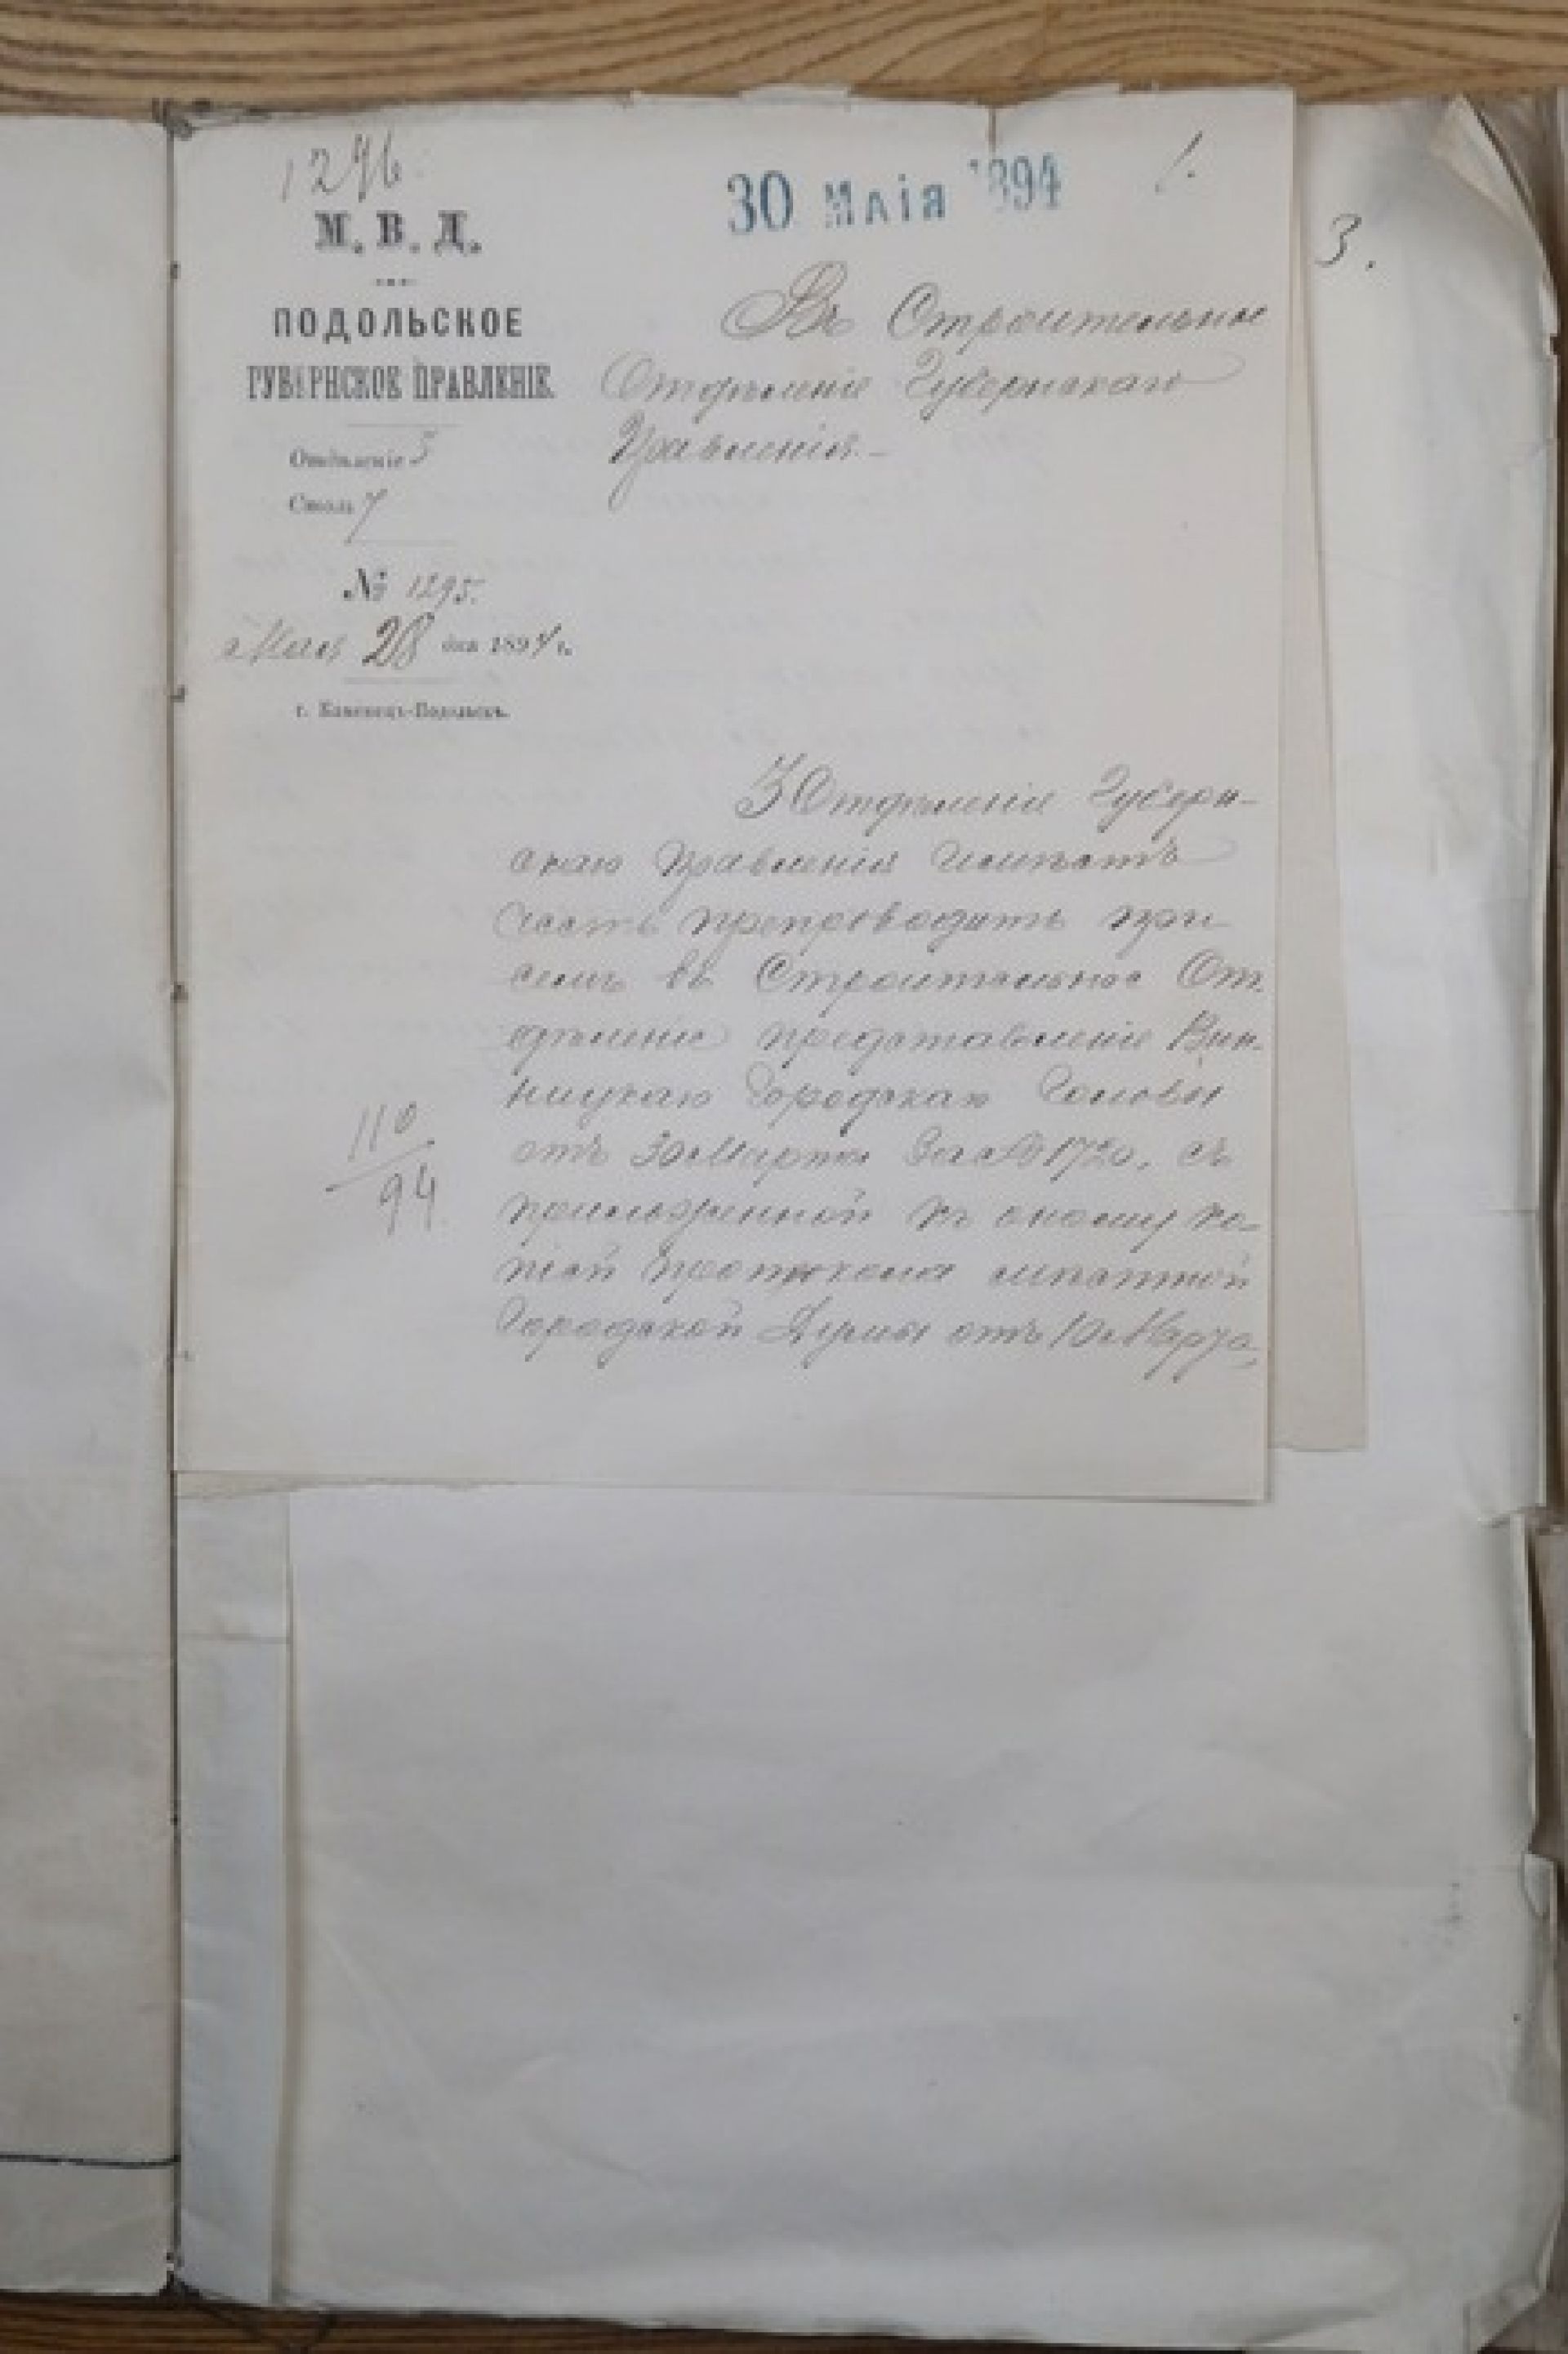 1296.
30 Маія 1894
1.
3.
М. В. Д.
ПОДОЛЬСКОЕ
ГУБЕРНСКОЕ ПРАВЛЕНІЕ.
Отдѣленіе 3
Столъ 4
№ 1295.
Мая 28 дня 1894 г.
г. Каменецъ-Подольскъ.
Въ Строительное
Отдѣленіе Губернскаго
Правленія.-
3 Отдѣленіе Губерн-
скаго Правленія имѣетъ
честь препроводить при
семъ въ Строительное От-
дѣленіе представленіе Вин-
ницкаго Городскаго Головы
отъ 30 Марта за № 1720, съ
приложенной къ оному ко-
піей протокола мѣстной
Городской Думы отъ 10 Марта,
110
94